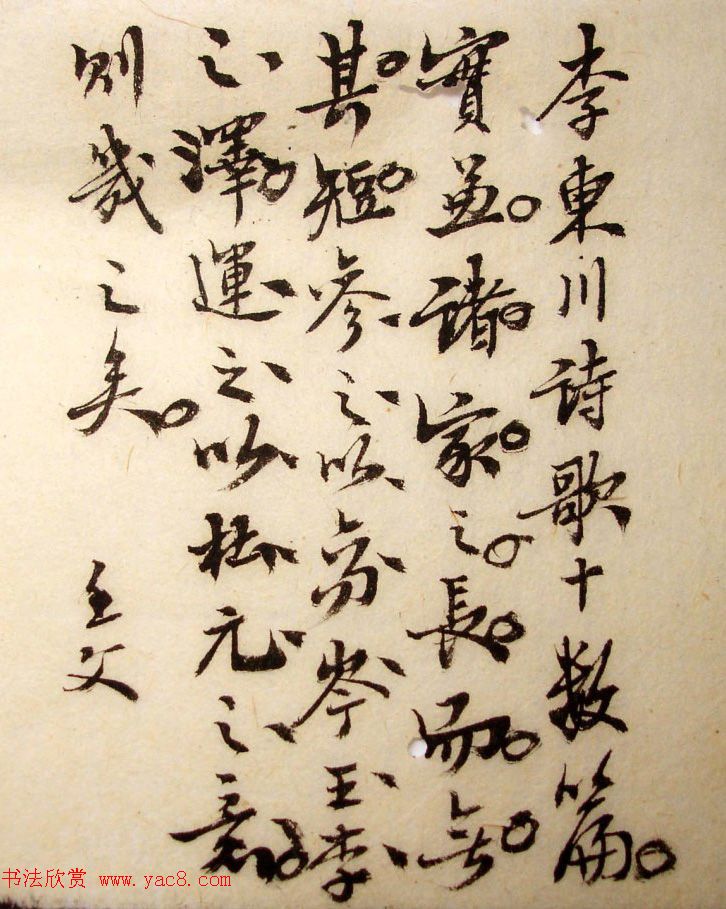 李東川詩歌十數篇
實並諸家之長而無
其短參之以高岑王李
之澤運之以杜元之意
則幾之矣
壬父
书法欣赏 www.yac8.com